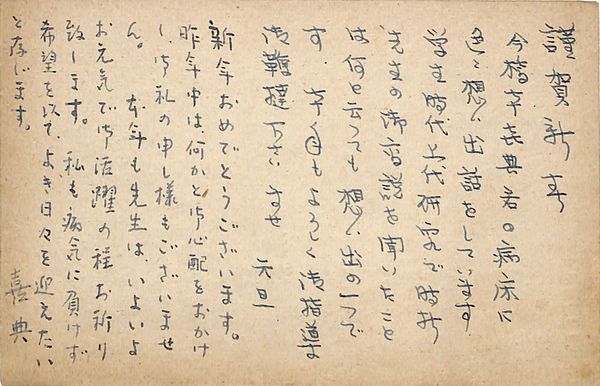 謹賀新年
今橋本喜典君の病床に
色々想ひ出話をしています
学生時代上代研究で時折
先生の御高説を聞いたこと
は何と云っても想ひ出の一つで
す 本年もよろしく御指導
御鞭撻下さいませ
元旦
新年おめでとうございます。
昨年中は何かと御心配をおかけ
し、御礼の申し様もございませ
ん。 本年も先生は、いよいよ
お元気で御活躍の程お祈り
致します。 私も病気に負けず
希望を以て、よき日々を迎えたい
と存じます。
喜典